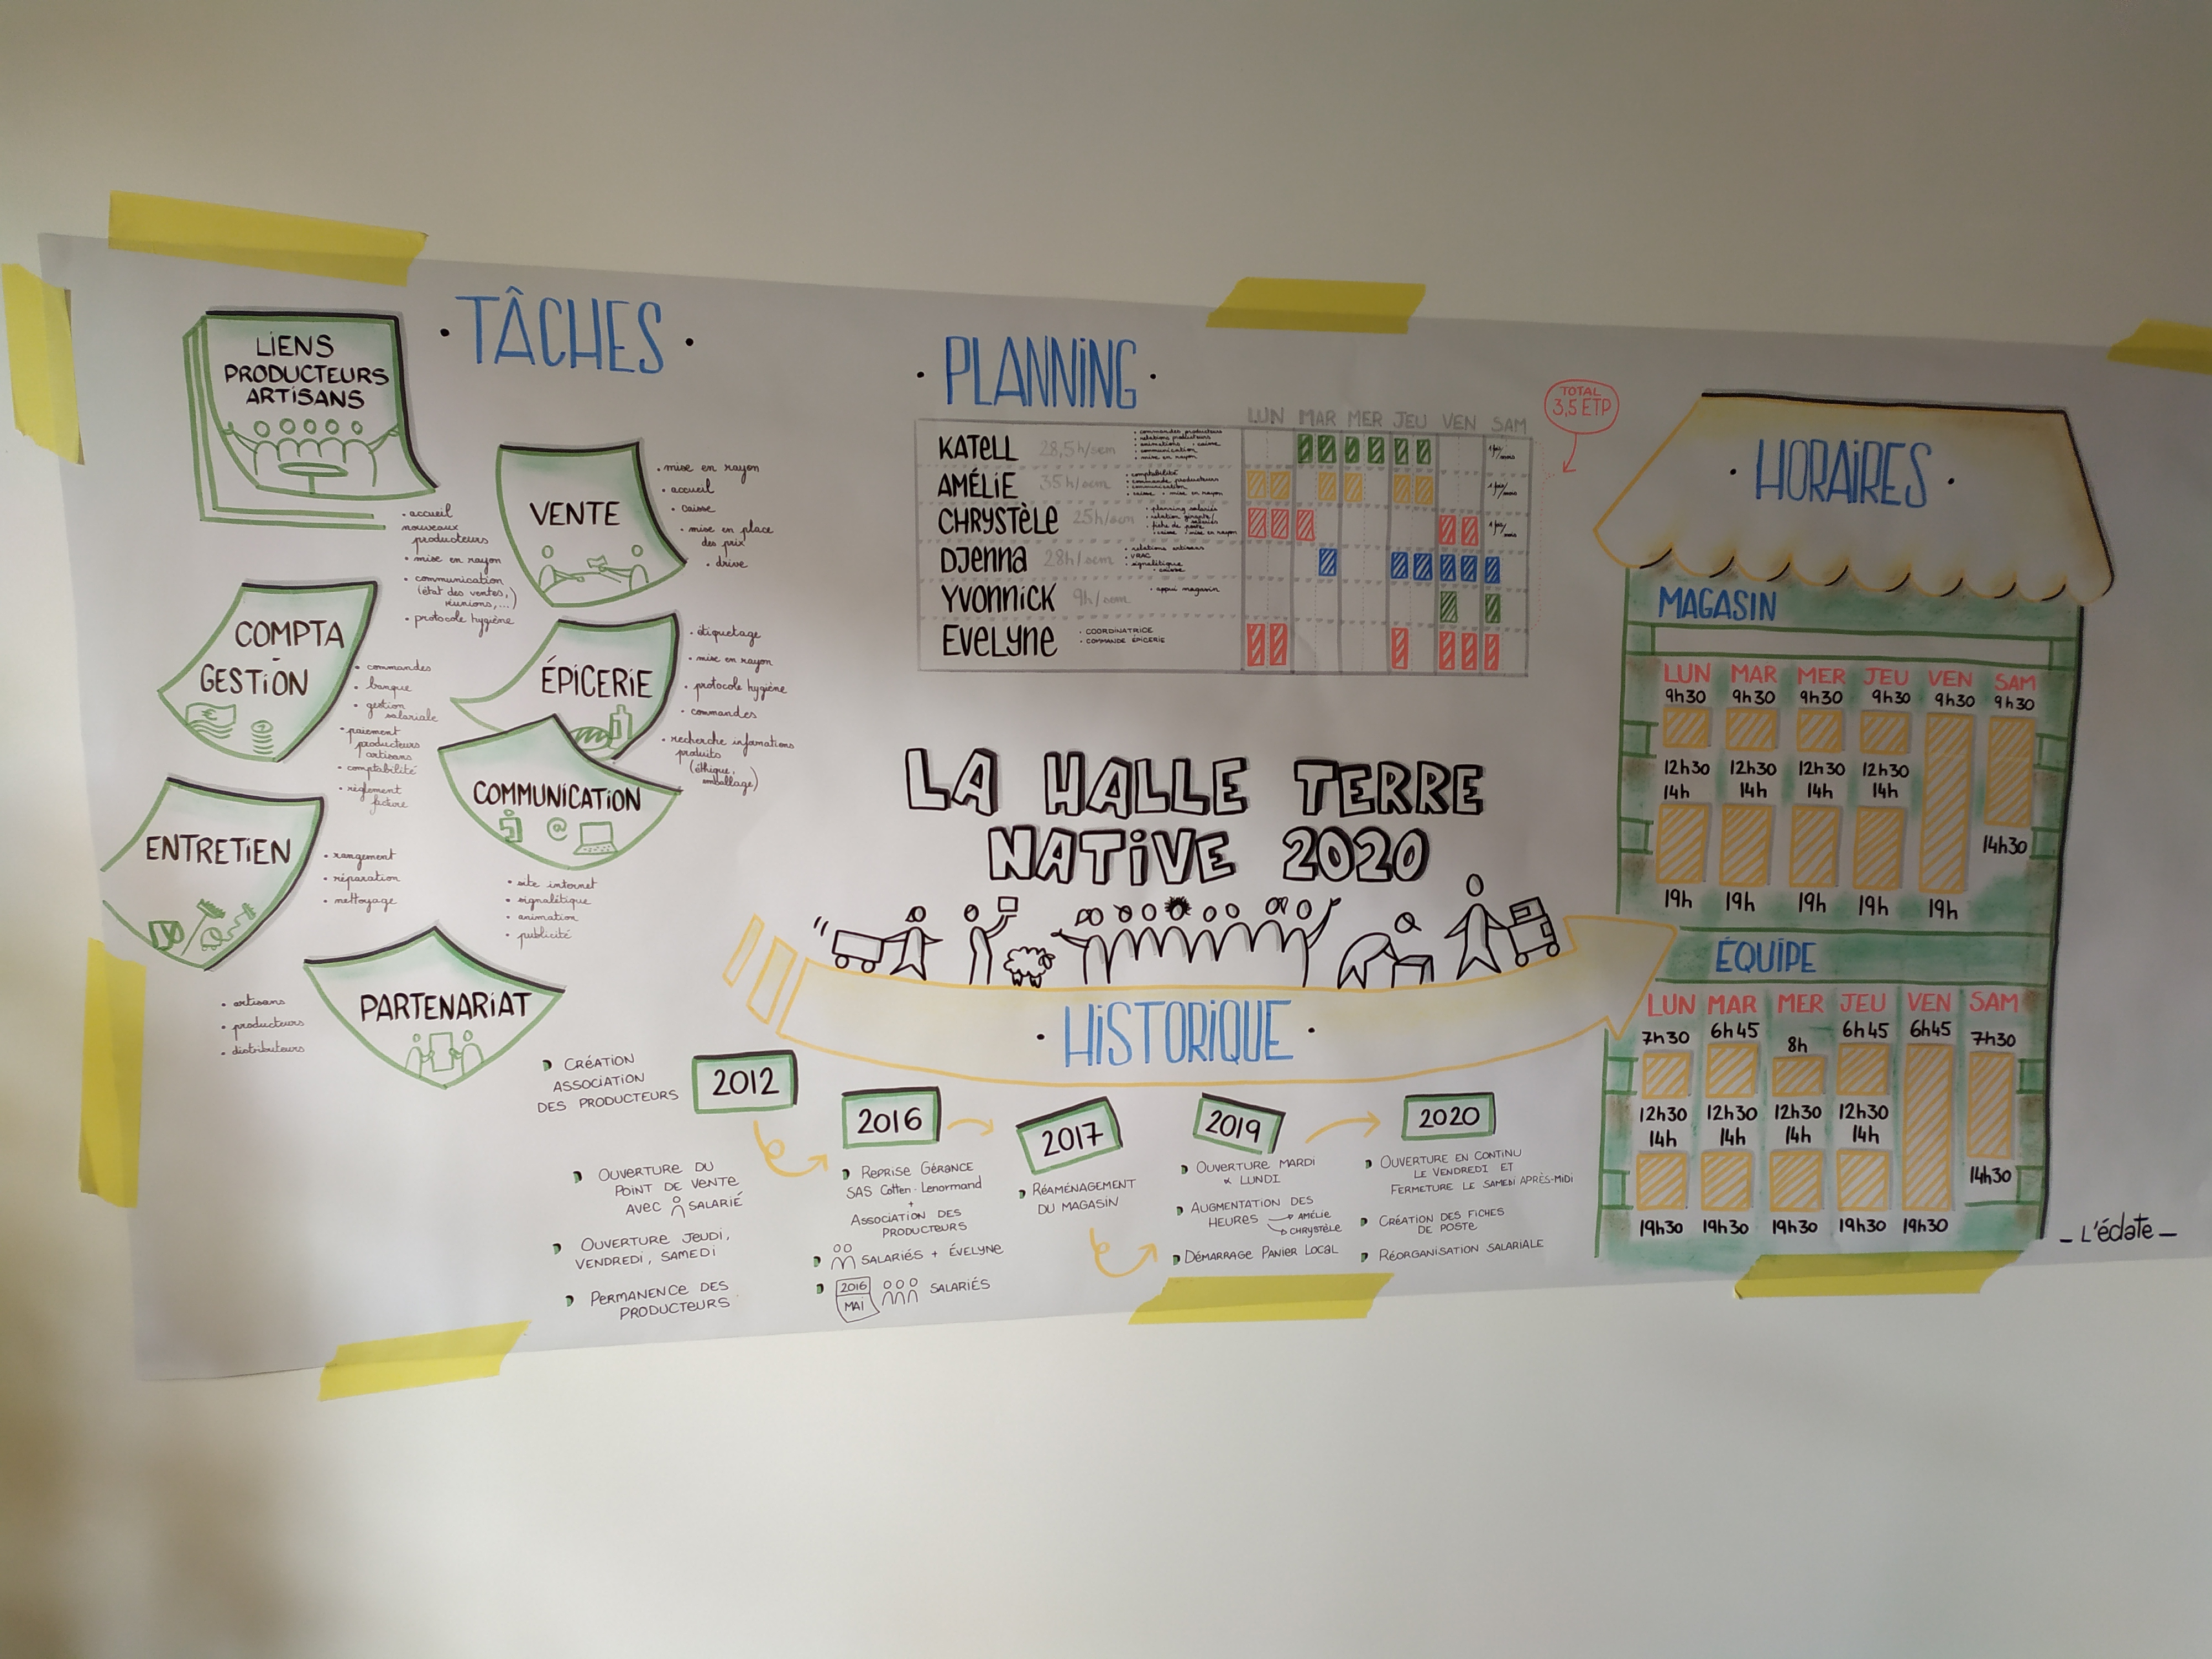 • TÂCHES •
LIENS
PRODUCTEURS
ARTISANS
• accueil
nouveaux
producteurs
• mise en rayon
• communication
(état des ventes,
réunions,...)
• protocole hygiène
VENTE
• mise en rayon
• accueil
• caisse
• mise en place
des prix
• drive
COMPTA
-
GESTION
• commandes
• banque
• gestion
salariale
• paiement
producteurs
artisans
• comptabilité
• règlement
facture
ÉPICERIE
• étiquetage
• mise en rayon
• protocole hygiène
• commandes
• recherche infomations
produits
(éthique,
emballage)
COMMUNICATION
@
• site internet
• signalétique
• animation
• publicité
ENTRETIEN
• rangement
• réparation
• nettoyage
PARTENARIAT
• artisans
• producteurs
• distributeurs
• PLANNING •
TOTAL
3,5 ETP
LUN MAR MER JEU VEN SAM
KATELL 28,5h/sem
• commandes producteurs
• relations producteurs
• animations • caisse
• communication
• mise en rayon
1 fois/
mois
AMÉLIE 35h/sem
• comptabilité
• commande producteurs
• communication
• caisse • mise en rayon
1 fois/
mois
CHRYSTÈLE 25h/sem
• planning salariés
• relation gérants/
salariés
• fiche de poste
• caisse • mise en rayon
1 fois/
mois
DJENNA 28h/sem
• relations artisans
• VRAC
• signalétique
• caisse
YVONNICK 9h/sem • appui magasin
EVELYNE
• COORDINATRICE
• COMMANDE ÉPICERIE
LA HALLE TERRE
NATIVE 2020
• HISTORIQUE •
2012
CRÉATION
ASSOCIATION
DES PRODUCTEURS
OUVERTURE DU
POINT DE VENTE
AVEC SALARIÉ
OUVERTURE JEUDI,
VENDREDI, SAMEDI
PERMANENCE DES
PRODUCTEURS
2016
REPRISE GÉRANCE
SAS Cotten-Lenormand
+
ASSOCIATION DES
PRODUCTEURS
SALARIÉS + ÉVELYNE
2016
MAI
SALARIÉS
2017
RÉAMÉNAGEMENT
DU MAGASIN
2019
OUVERTURE MARDI
& LUNDI
AUGMENTATION DES
HEURES → AMÉLIE
→ CHRYSTÈLE
DÉMARRAGE PANIER LOCAL
2020
OUVERTURE EN CONTINU
LE VENDREDI ET
FERMETURE LE SAMEDI APRÈS-MIDI
CRÉATION DES FICHES
DE POSTE
RÉORGANISATION SALARIALE
• HORAIRES •
MAGASIN
LUN MAR MER JEU VEN SAM
9h30 9h30 9h30 9h30 9h30 9h30
12h30 12h30 12h30 12h30
14h 14h 14h 14h
14h30
19h 19h 19h 19h 19h
ÉQUIPE
LUN MAR MER JEU VEN SAM
7h30 6h45 8h 6h45 6h45 7h30
12h30 12h30 12h30 12h30
14h 14h 14h 14h
14h30
19h30 19h30 19h30 19h30 19h30
_ L'éclate _